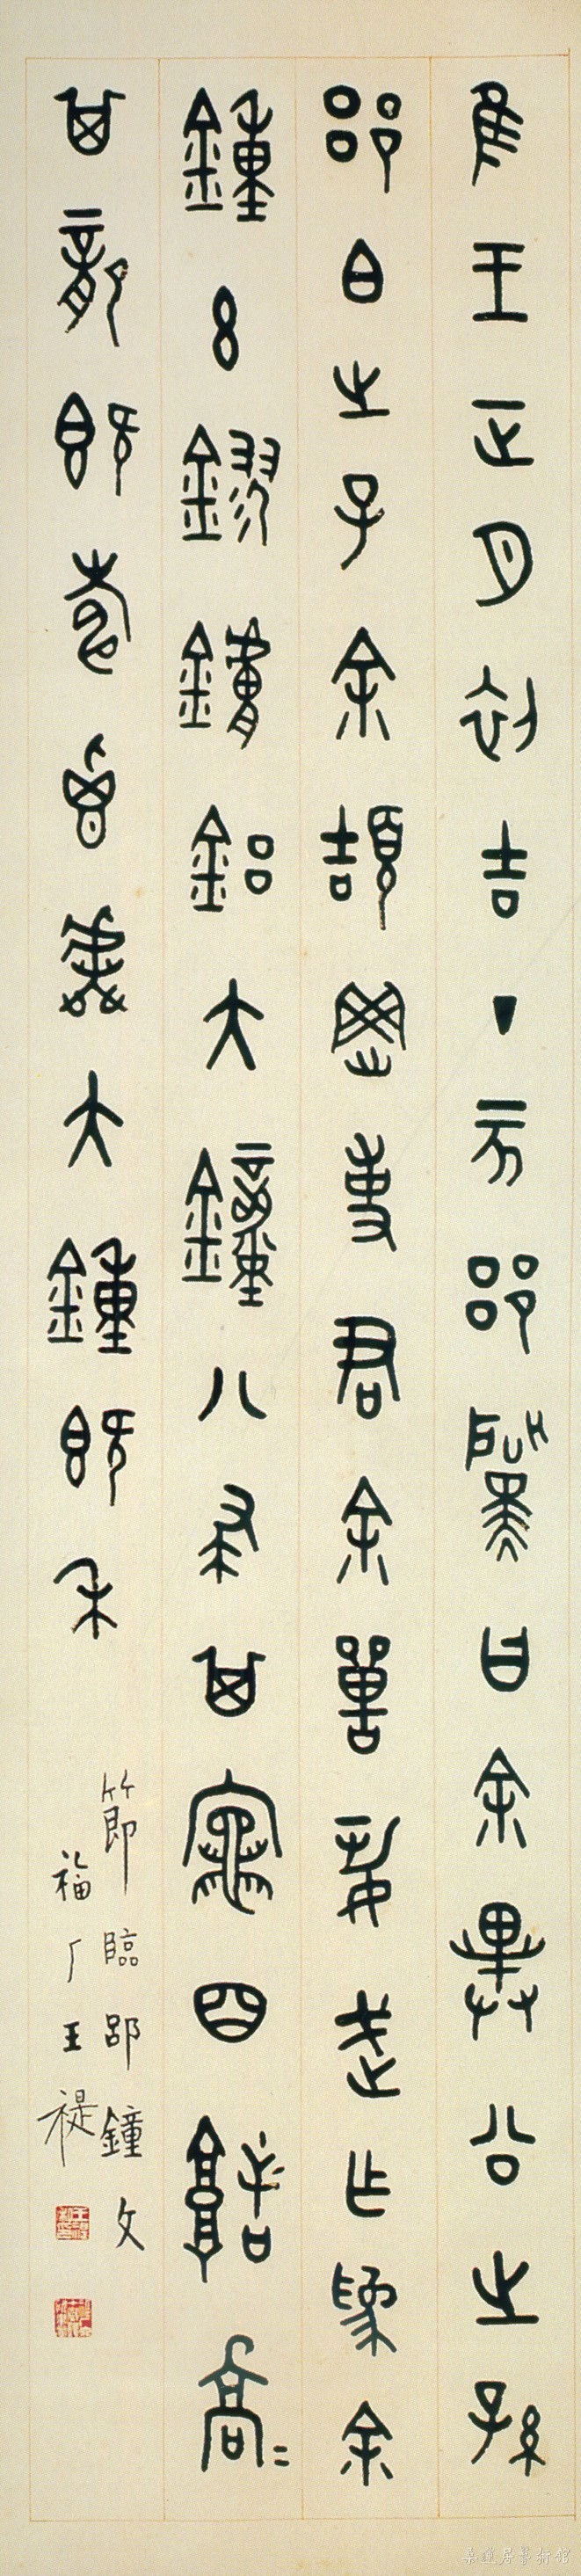 隹王正月初吉丁亥郘黛曰余畢公之孫
郘白之子余頡岡事君余嘼丮武乍為余
鐘玄鏐鏞鋁大鐘八聿其竈四堵喬〻
其龍既壽鬯虡大鐘既縣
節臨郘鐘文
福厂王禔